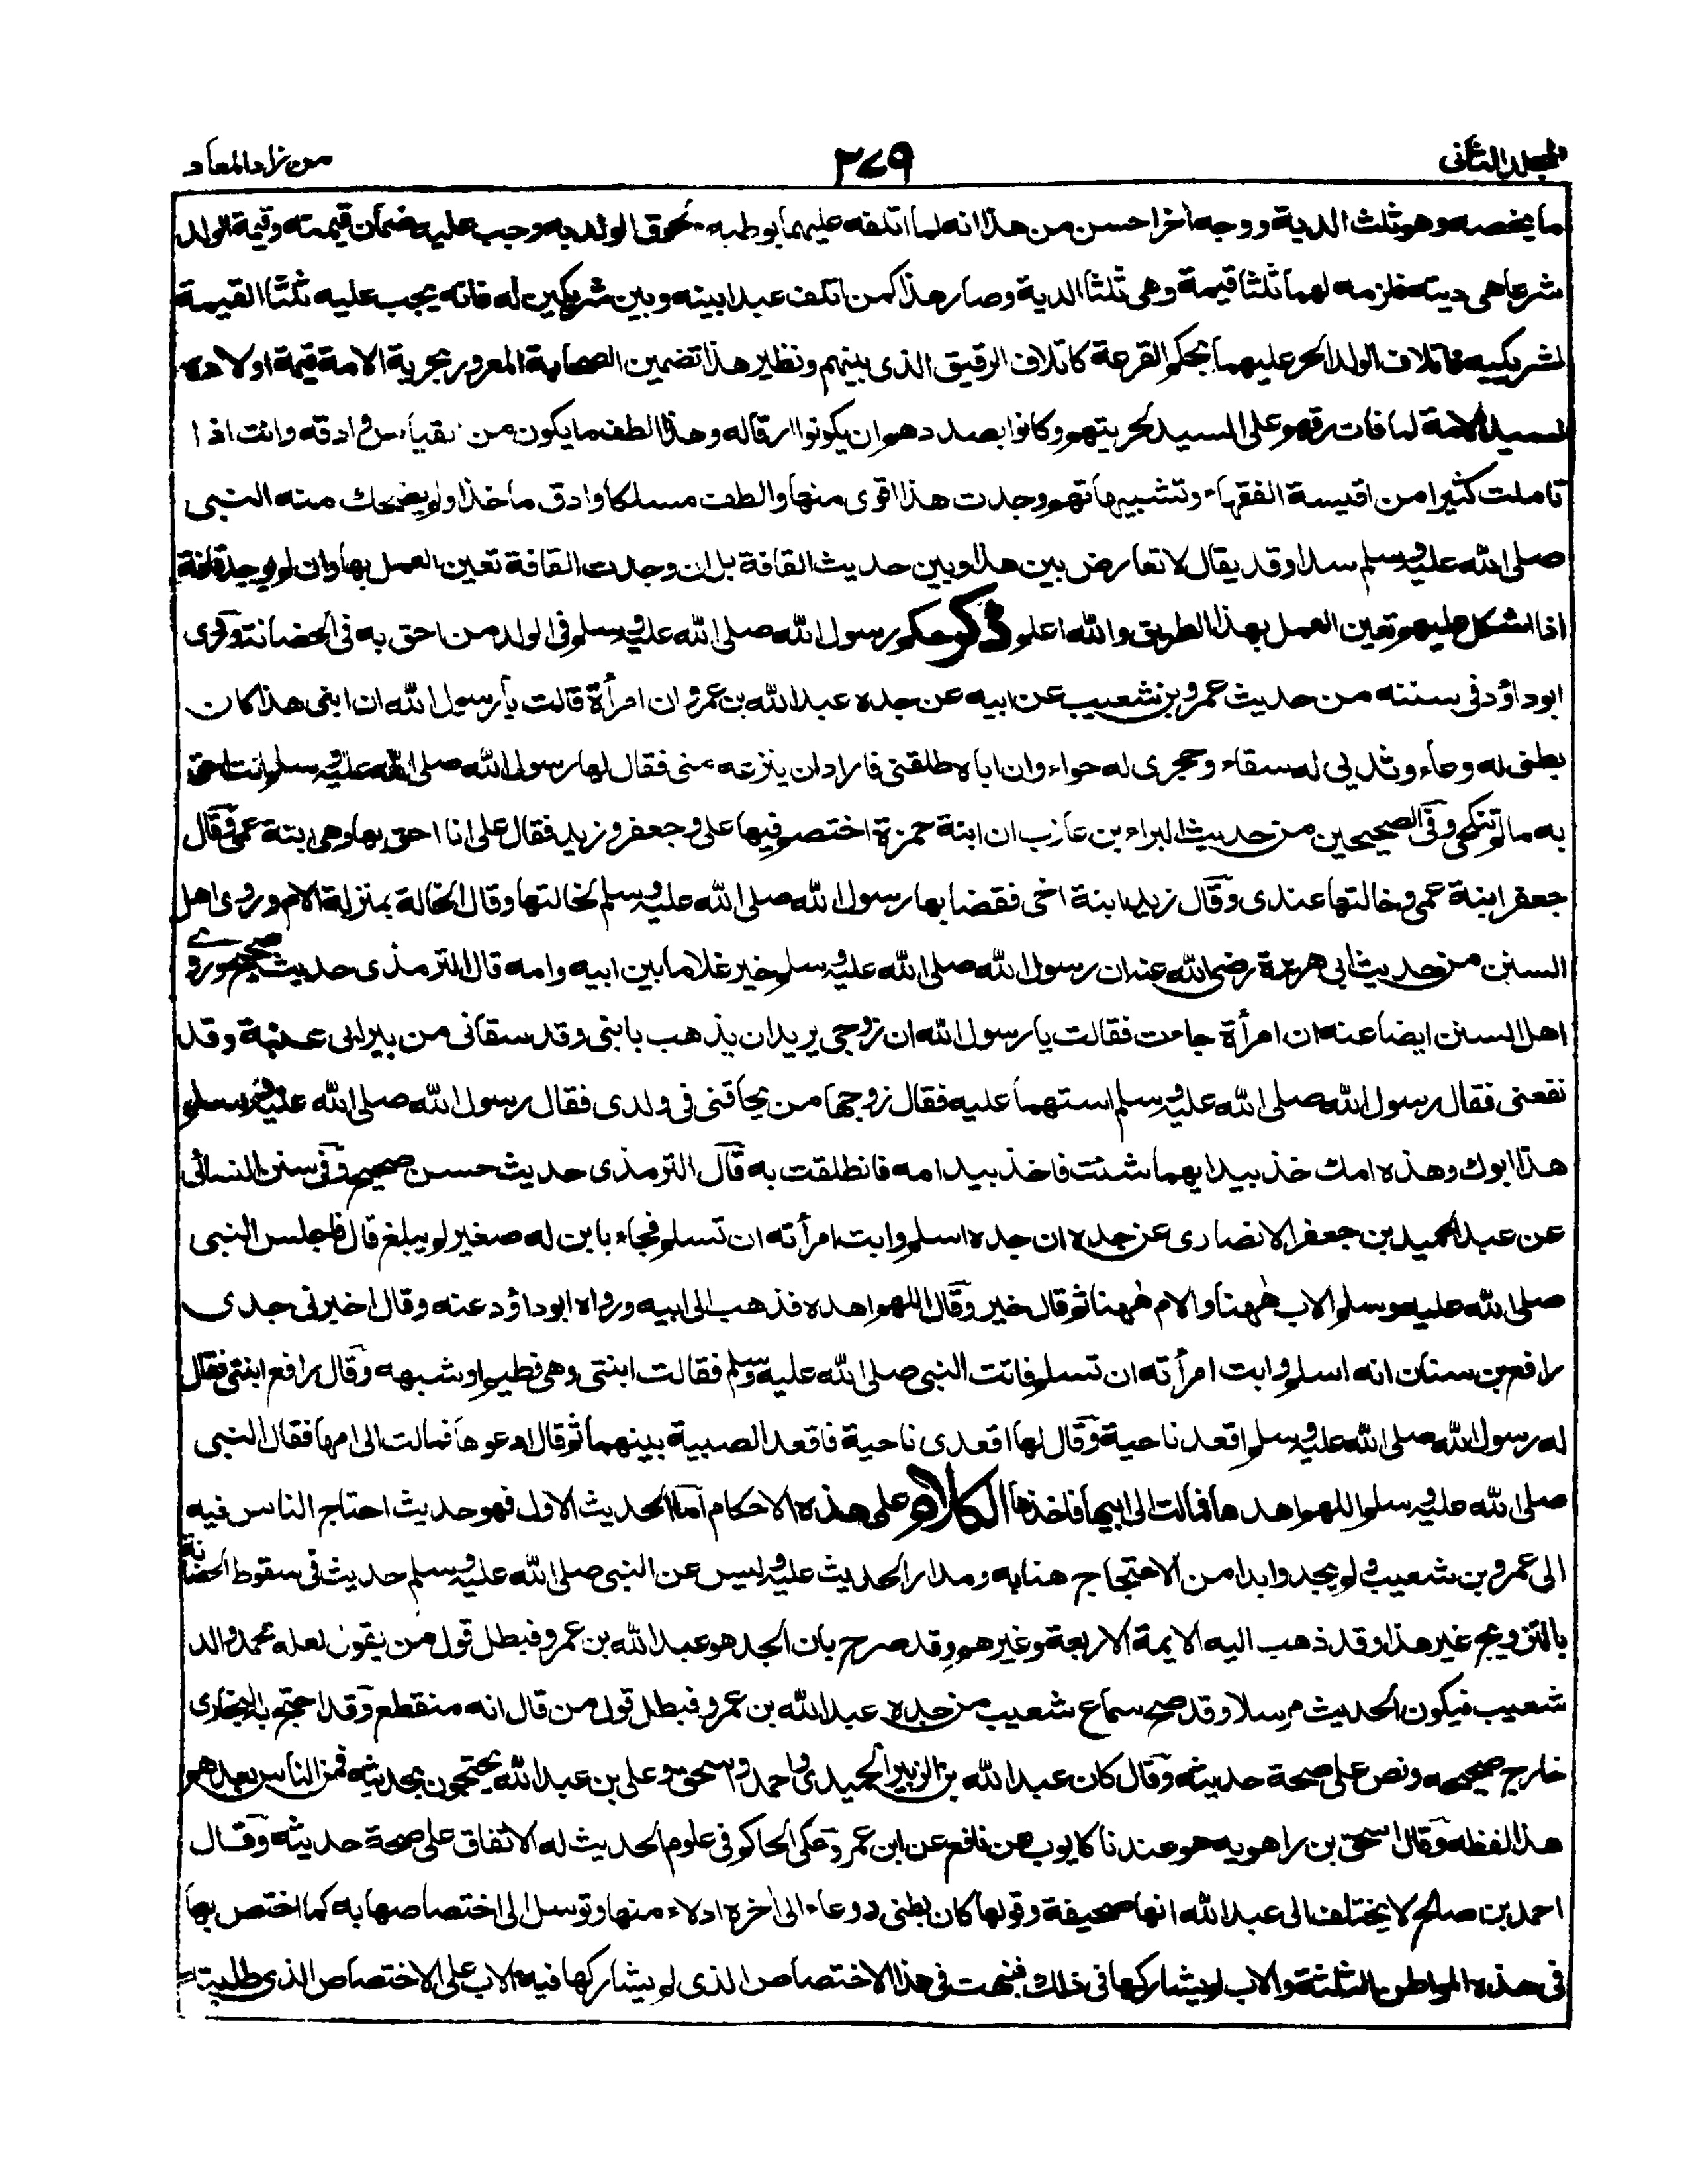 المجلد الثانى
٢٧٩
من زاد المعاد
ما يخصه وهو ثلث الدية ووجه اخر احسن من هذا انه لما اتلفه عليهما بوطيه ولحوق الولد به وجب عليه ضمان قيمته وقيمة الولد
شرعا هى ديته فلزمه لهما ثلثا قيمة وهى ثلثا الدية وصار هذا كمن اتلف عبدا بينه وبين شريكين له فانه يجب عليه ثلثا القيمة
لشريكيه فاتلاف الولد الحر عليهما بحكم القرعة كاتلاف الرقيق الذى بينهم ونظير هذا تضمين الصحابة المغرور بحرية الامة قيمة اولاده
لسيد الامة لما فات رقهم على السيد لحريتهم وكانوا بصدد هم ان يكونوا ارقاله وهذا الطف ما يكون من القياس وادقه وانت اذا
تاملت كثيرا من اقيسة الفقهاء وتشبيهاتهم وجدت هذا اقوى منها والطف مسلكا وادق ماخذا ولم يضحك منه النبى
صلى الله عليه وسلم سدا وقد يقال لا تعارض بين هذا وبين حديث القافة بل ان وجدت القافة تعين العمل بها وان لم يوجد قافة
اذا اشكل عليهم تعين العمل بهذا الطريق والله اعلم ذكر حكم رسول الله صلى الله عليه وسلم فى الولد من احق به فى الحضانة وروى
ابو داؤد فى سننه من حديث عمرو بن شعيب عن ابيه عن جده عبد الله بن عمرو ان امرأة قالت يا رسول الله ان ابنى هذا كان
بطنى له وعاء وثديى له سقاء وحجرى له حواء وان اباه طلقنى فاراد ان ينزعه منى فقال لها رسول الله صلى الله عليه وسلم انت احق
به ما لم تنكحى وفى الصحيحين من حديث البراء بن عازب ان ابنة حمزة اختصم فيها على وجعفر وزيد فقال على انا احق بها وهى ابنة عمى وقال
جعفر ابنة عمى وخالتها عندى وقال زيد ابنة اخى فقضا بها رسول الله صلى الله عليه وسلم لخالتها وقال الخالة بمنزلة الام وروى اهل
السنن من حديث ابى هريرة رضى الله عنه ان رسول الله صلى الله عليه وسلم خير غلاما بين ابيه وامه قال الترمذى حديث صحيح وروى
اهل السنن ايضا عنه ان امرأة جاءت فقالت يا رسول الله ان زوجى يريد ان يذهب بابنى وقد سقانى من بير ابى عنبة وقد
نفعنى فقال رسول الله صلى الله عليه وسلم استهما عليه فقال زوجها من يحاقنى فى ولدى فقال رسول الله صلى الله عليه وسلم
هذا ابوك وهذه امك خذ بيد ايهما شئت فاخذ بيد امه فانطلقت به قال الترمذى حديث حسن صحيح وفى سنن النسائى
عن عبد الحميد بن جعفر الانصارى عن جده ان جده اسلم وابت امرأته ان تسلم فجاء بابن له صغير لم يبلغ قال فاجلس النبى
صلى الله عليه وسلم الاب ههنا والام ههنا ثم قال خير وقال اللهم اهده فذهب الى ابيه ورواه ابو داؤد عنه وقال اخبرنى جدى
رافع بن سنان انه اسلم وابت امرأته ان تسلم فاتت النبى صلى الله عليه وسلم فقالت ابنتى وهى فطيم او شبهه وقال رافع ابنتى فقال
له رسول الله صلى الله عليه وسلم اقعد ناحية وقال لها اقعدى ناحية فاقعد الصبية بينهما ثم قال ادعوها فمالت الى امها فقال النبى
صلى الله عليه وسلم اللهم اهدها فمالت الى ابيها فاخذها الكلام على هذه الاحكام اما الحديث الاول فهو حديث احتاج الناس فيه
الى عمرو بن شعيب ولم يجدوا بدا من الاحتجاج هنا به ومدار الحديث عليه وليس عن النبى صلى الله عليه وسلم حديث فى سقوط الحضانة
بالتزويج غير هذا وقد ذهب اليه الايمة الاربعة وغيرهم وقد صرح بان الجد هو عبد الله بن عمرو فبطل قول من يقول لعله محمد والد
شعيب فيكون الحديث مرسلا وقد صح سماع شعيب من جده عبد الله بن عمرو فبطل قول من قال انه منقطع وقد احتج به البخارى
خارج صحيحه ونص على صحة حديثه وقال كان عبد الله بن الزبير الحميدى واحمد واسحق وعلى بن عبد الله يحتجون بحديثه فمن الناس بعدهم
هذا لفظه وقال اسحق بن راهويه هو عندنا كايوب عن نافع عن ابن عمر وحكى الحاكم فى علوم الحديث له الاتفاق على صحة حديثه وقال
احمد بن صالح لا يختلف الى عبد الله انها صحيفة وقولها كان بطنى له وعاء الى اخره ادلاء منها وتوسل الى اختصاصها به كما اختص بها
فى هذه المواطن الثلثة والاب لم يشاركها فى ذلك فنبهت فى هذا الاختصاص الذى لم يشاركها فيه الاب على الاختصاص الذى طلبته